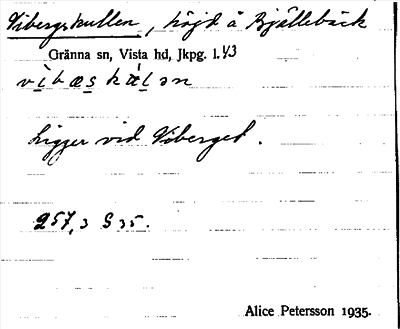 Vibergskullen, höjd å Bjällebäck
Gränna sn, Vista hd, Jkpg. l. 43
Ligger vid Viberget.
257,3 S 35.
Alice Petersson 1935.